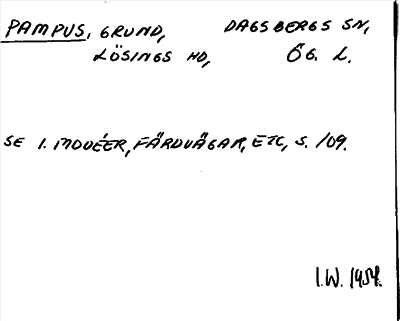 PAMPUS, GRUND, DAGSBERGS SN,
LÖSINGS HD, ÖG. L.
SE I. MODÉER, FÄRDVÄGAR, ETC, S. 109.
I.W. 1954.